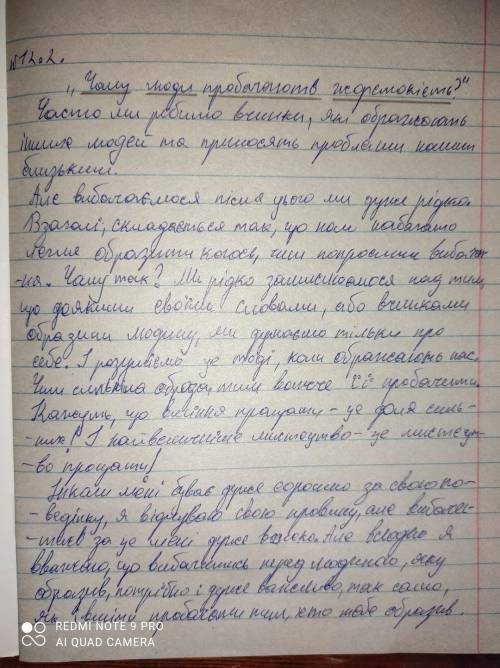 №12.2.
„Чому люди пробачають жорстокість?"
Часто ми робимо вчинки, які ображають
інших людей та приносять проблеми нашим
близьким.
Але вибачаємося після цього ми дуже рідко.
Взагалі, складається так, що нам набагато
легше образити когось, чим попросити вибачен-
-ня. Чому так? Ми рідко замислюємося над тим,
що деякими своїми словами, або вчинками
образили людину, ми думаємо тільки про
себе. І розуміємо це тоді, коли ображають нас.
Чим сильніша образа, тим важче її пробачити.
Кажуть, що вміння прощати - це доля силь-
-них! І найвеличніше мистецтво - це мистецт-
-во прощати!
Інколи мені буває дуже соромно за свою по-
-ведінку, я відчуваю свою провину, але вибачи-
-тись за це мені дуже важко. Але всеодно я
вважаю, що вибачитись перед людиною, яку
образив, потрібно і дуже важливо, так само,
як і вміти пробачати тим, хто тебе образив.
REDMI NOTE 9 PRO
AI QUAD CAMERA